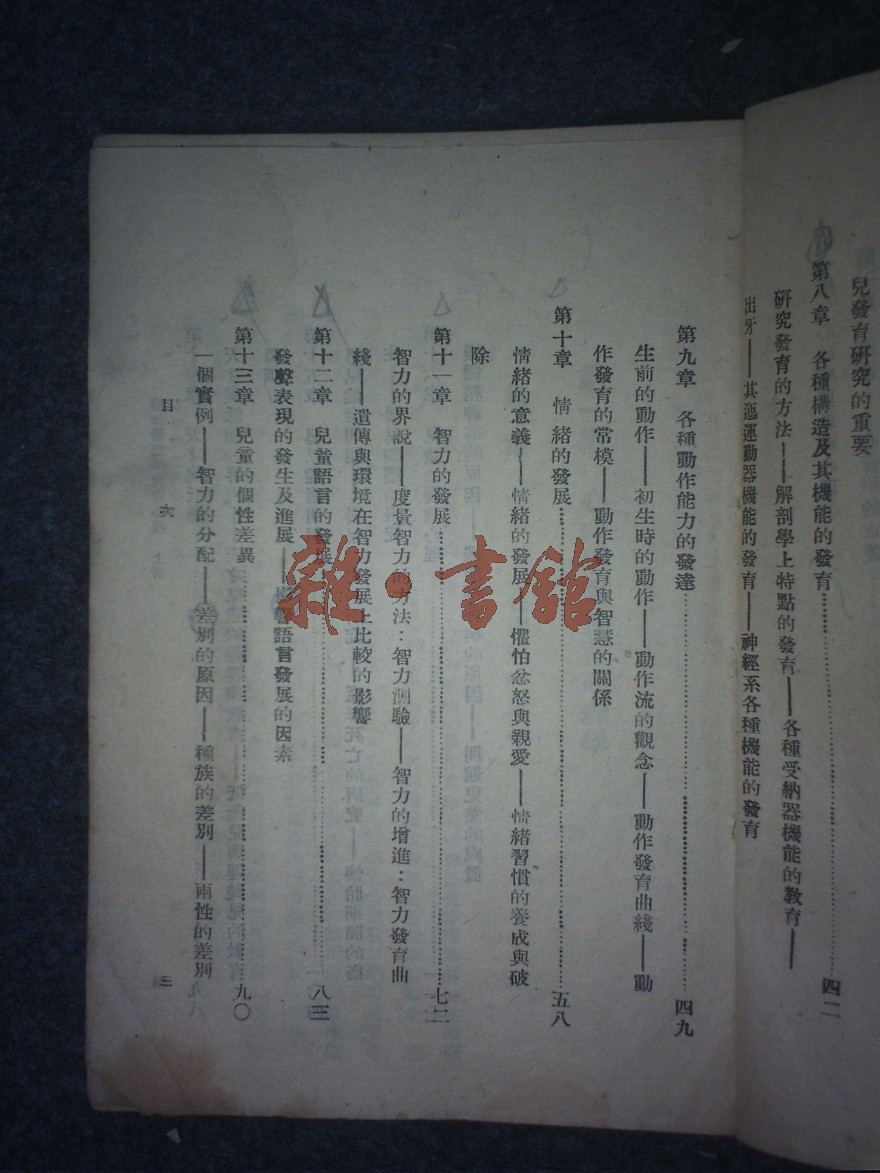 兒發育研究的重要
第八章　各種構造及其機能的發育……四二
研究發育的方法——解剖學上特點的發育——各種受納器機能的教育——
出牙——其邇運動器機能的發育——神經系各種機能的發育
第九章　各種動作能力的發達……四九
生前的動作——初生時的動作——動作流的觀念——動作發育曲綫——動
作發育的常模——動作發育與智慧的關係
第十章　情緒的發展……五八
情緒的意義——情緒的發展——懼怕忿怒與親愛——情緒習慣的養成與破
除
第十一章　智力的發展……七二
智力的界說——度量智力的方法：智力測驗——智力的增進：智力發育曲
綫——遺傳與環境在智力發展上比較的影響
第十二章　兒童語言的發展……八三
發聲表現的發生及進展——語言發展的因素
第十三章　兒童的個性差異……九〇
一個實例——智力的分配——差別的原因——種族的差別——兩性的差別
目　次　三
雜·書館